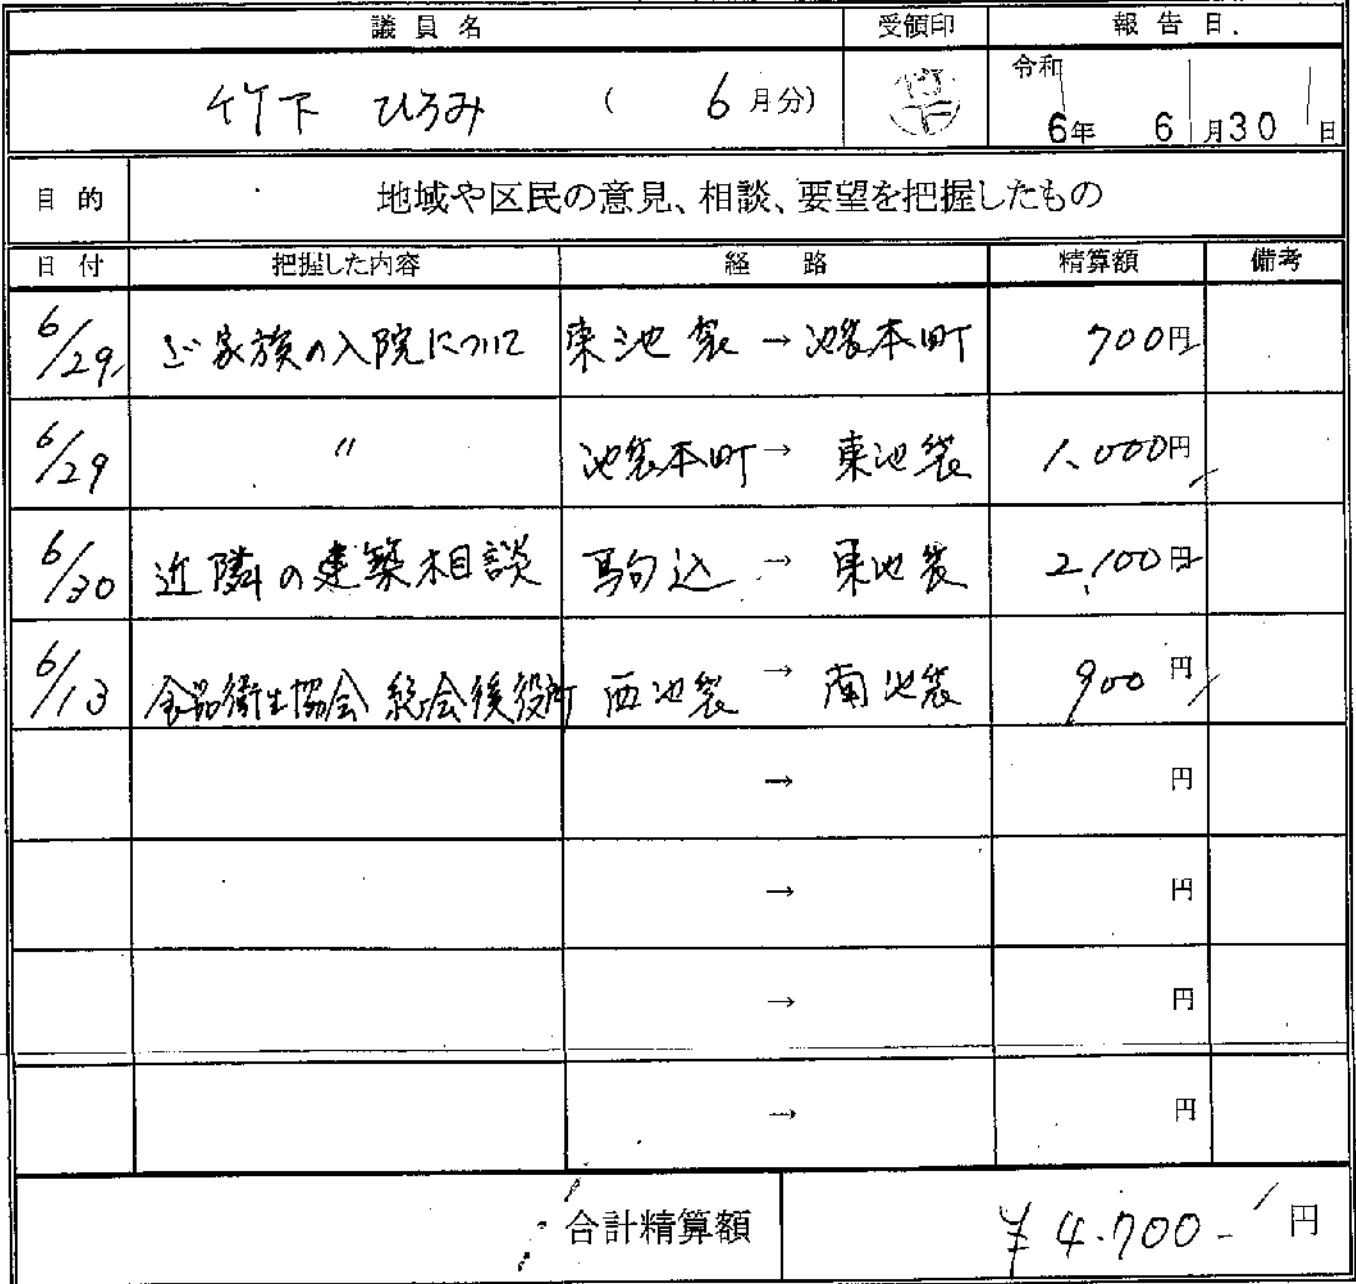 議員名 受領印 報告日.
竹下 ひろみ ( 6月分) 令和 6年 6月30日
目的 地域や区民の意見、相談、要望を把握したもの
日付 把握した内容 経路 精算額 備考
6/29 ご家族の入院について 東池袋 → 池袋本町 700円
6/29 〃 池袋本町 → 東池袋 1,000円
6/30 近隣の建築相談 駒込 → 東池袋 2,100円
6/13 食品衛生協会 総会後役所 西池袋 → 南池袋 900円
→ 円
→ 円
→ 円
→ 円
合計精算額 ¥4.700- 円